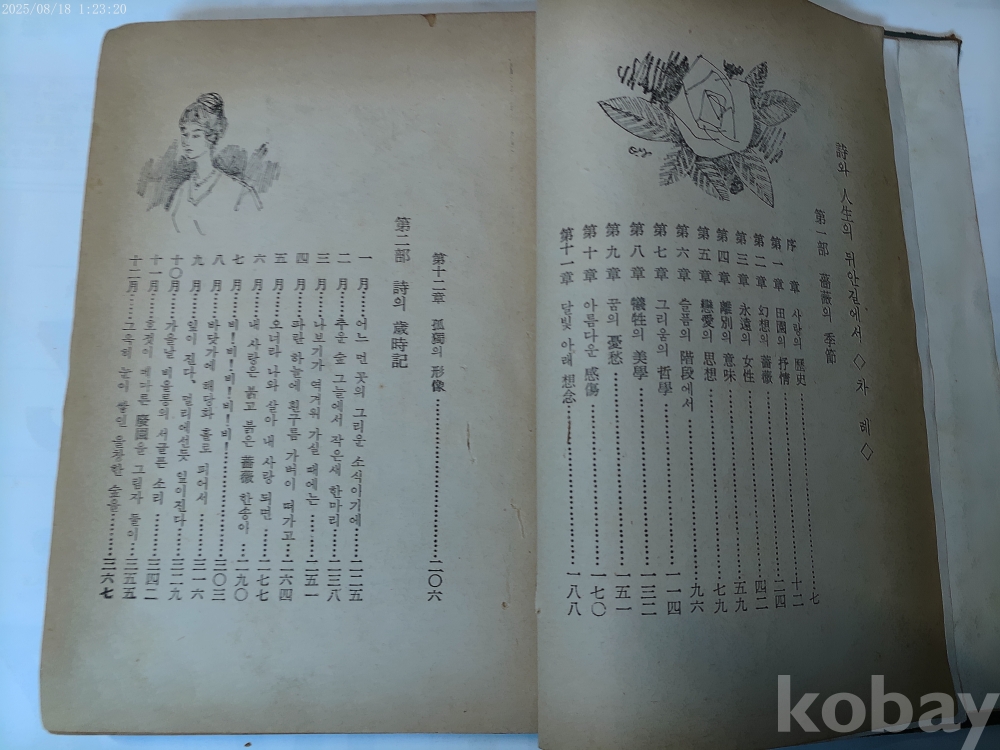 2025/08/18 1:23:20
詩와 人生의 뒤안길에서 〈차례〉
第一部 薔薇의 季節
序章 사랑의 歷史……七
第一章 田園의 抒情……十二
第二章 幻想의 薔薇……二四
第三章 永遠의 女性……四二
第四章 離別의 意味……五九
第五章 戀愛의 思想……七九
第六章 슬픔의 階段에서……九六
第七章 그리움의 哲學……一一四
第八章 犧牲의 美學……一三二
第九章 꿈의 憂愁……一五一
第十章 아름다운 感傷……一七〇
第十一章 달빛 아래 想念……一八八
第十二章 孤獨의 形像……二〇六
第二部 詩의 歲時記
一月……어느 먼 곳의 그리운 소식이기에……二二五
二月……추운 숲 그늘에서 작은새 한마리……二三八
三月……나보기가 역겨워 가실 때에는……二五一
四月……파란 하늘에 흰구름 가벼이 떠가고……二六四
五月……오너라 나와 살아 내 사랑 되면……二七七
六月……내 사랑은 붉고 붉은 薔薇 한송이……二九〇
七月……비!비!비!비!비!……三〇三
八月……바닷가에 해당화 홀로 피어서……三一六
九月……잎이 진다, 멀리에선듯 잎이진다……三二九
十〇月……가을날 비올롱의 서글픈 소리……三四二
十一月……호젓이 메마른 廢園을 그림자 둘이……三五五
十二月……그윽히 눈이 쌓인 울창한 숲을……三六七
kobay